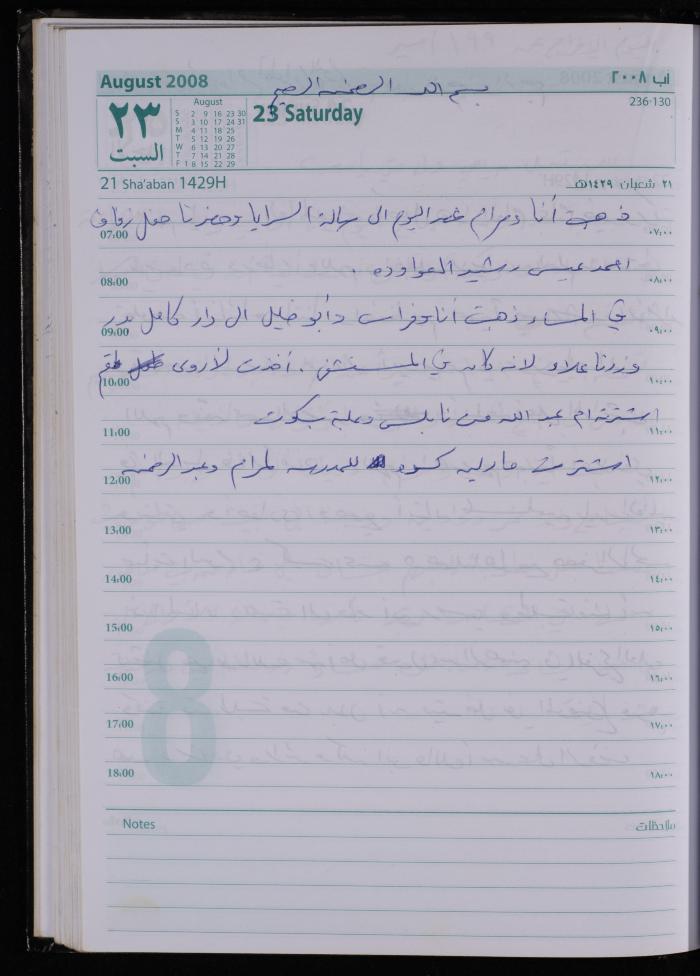 August 2008
آب ٢٠٠٨
بسم الله الرحمن الرحيم
236-130
٢٣
السبت
August
S 2 9 16 23 30
S 3 10 17 24 31
M 4 11 18 25
T 5 12 19 26
W 6 13 20 27
T 7 14 21 28
F 1 8 15 22 29
23 Saturday
21 Sha'aban 1429H
٢١ شعبان ١٤٢٩هـ
ذهبت أنا ومرام عصر اليوم الى صالة السرايا وحضرنا حفل زفاف
07:00 ٠٧:٠٠
احمد عيسى رشيد العواوده .
08:00 ٠٨:٠٠
في المساء ذهبت أنا وفراس وأبو خليل الى دار كامل بدر
09:00 ٠٩:٠٠
وزرنا علاء لانه كان في المستشفى . أخذت لأروى طقم
10:00 ١٠:٠٠
اشترته ام عبد الله من نابلس وعلبة بسكوت
11:00 ١١:٠٠
اشترت مارليه كسوه للمدرسه لمرام وعبد الرحمن
12:00 ١٢:٠٠
13:00 ١٣:٠٠
14:00 ١٤:٠٠
15:00 ١٥:٠٠
16:00 ١٦:٠٠
17:00 ١٧:٠٠
18:00 ١٨:٠٠
8
Notes
ملاحظات